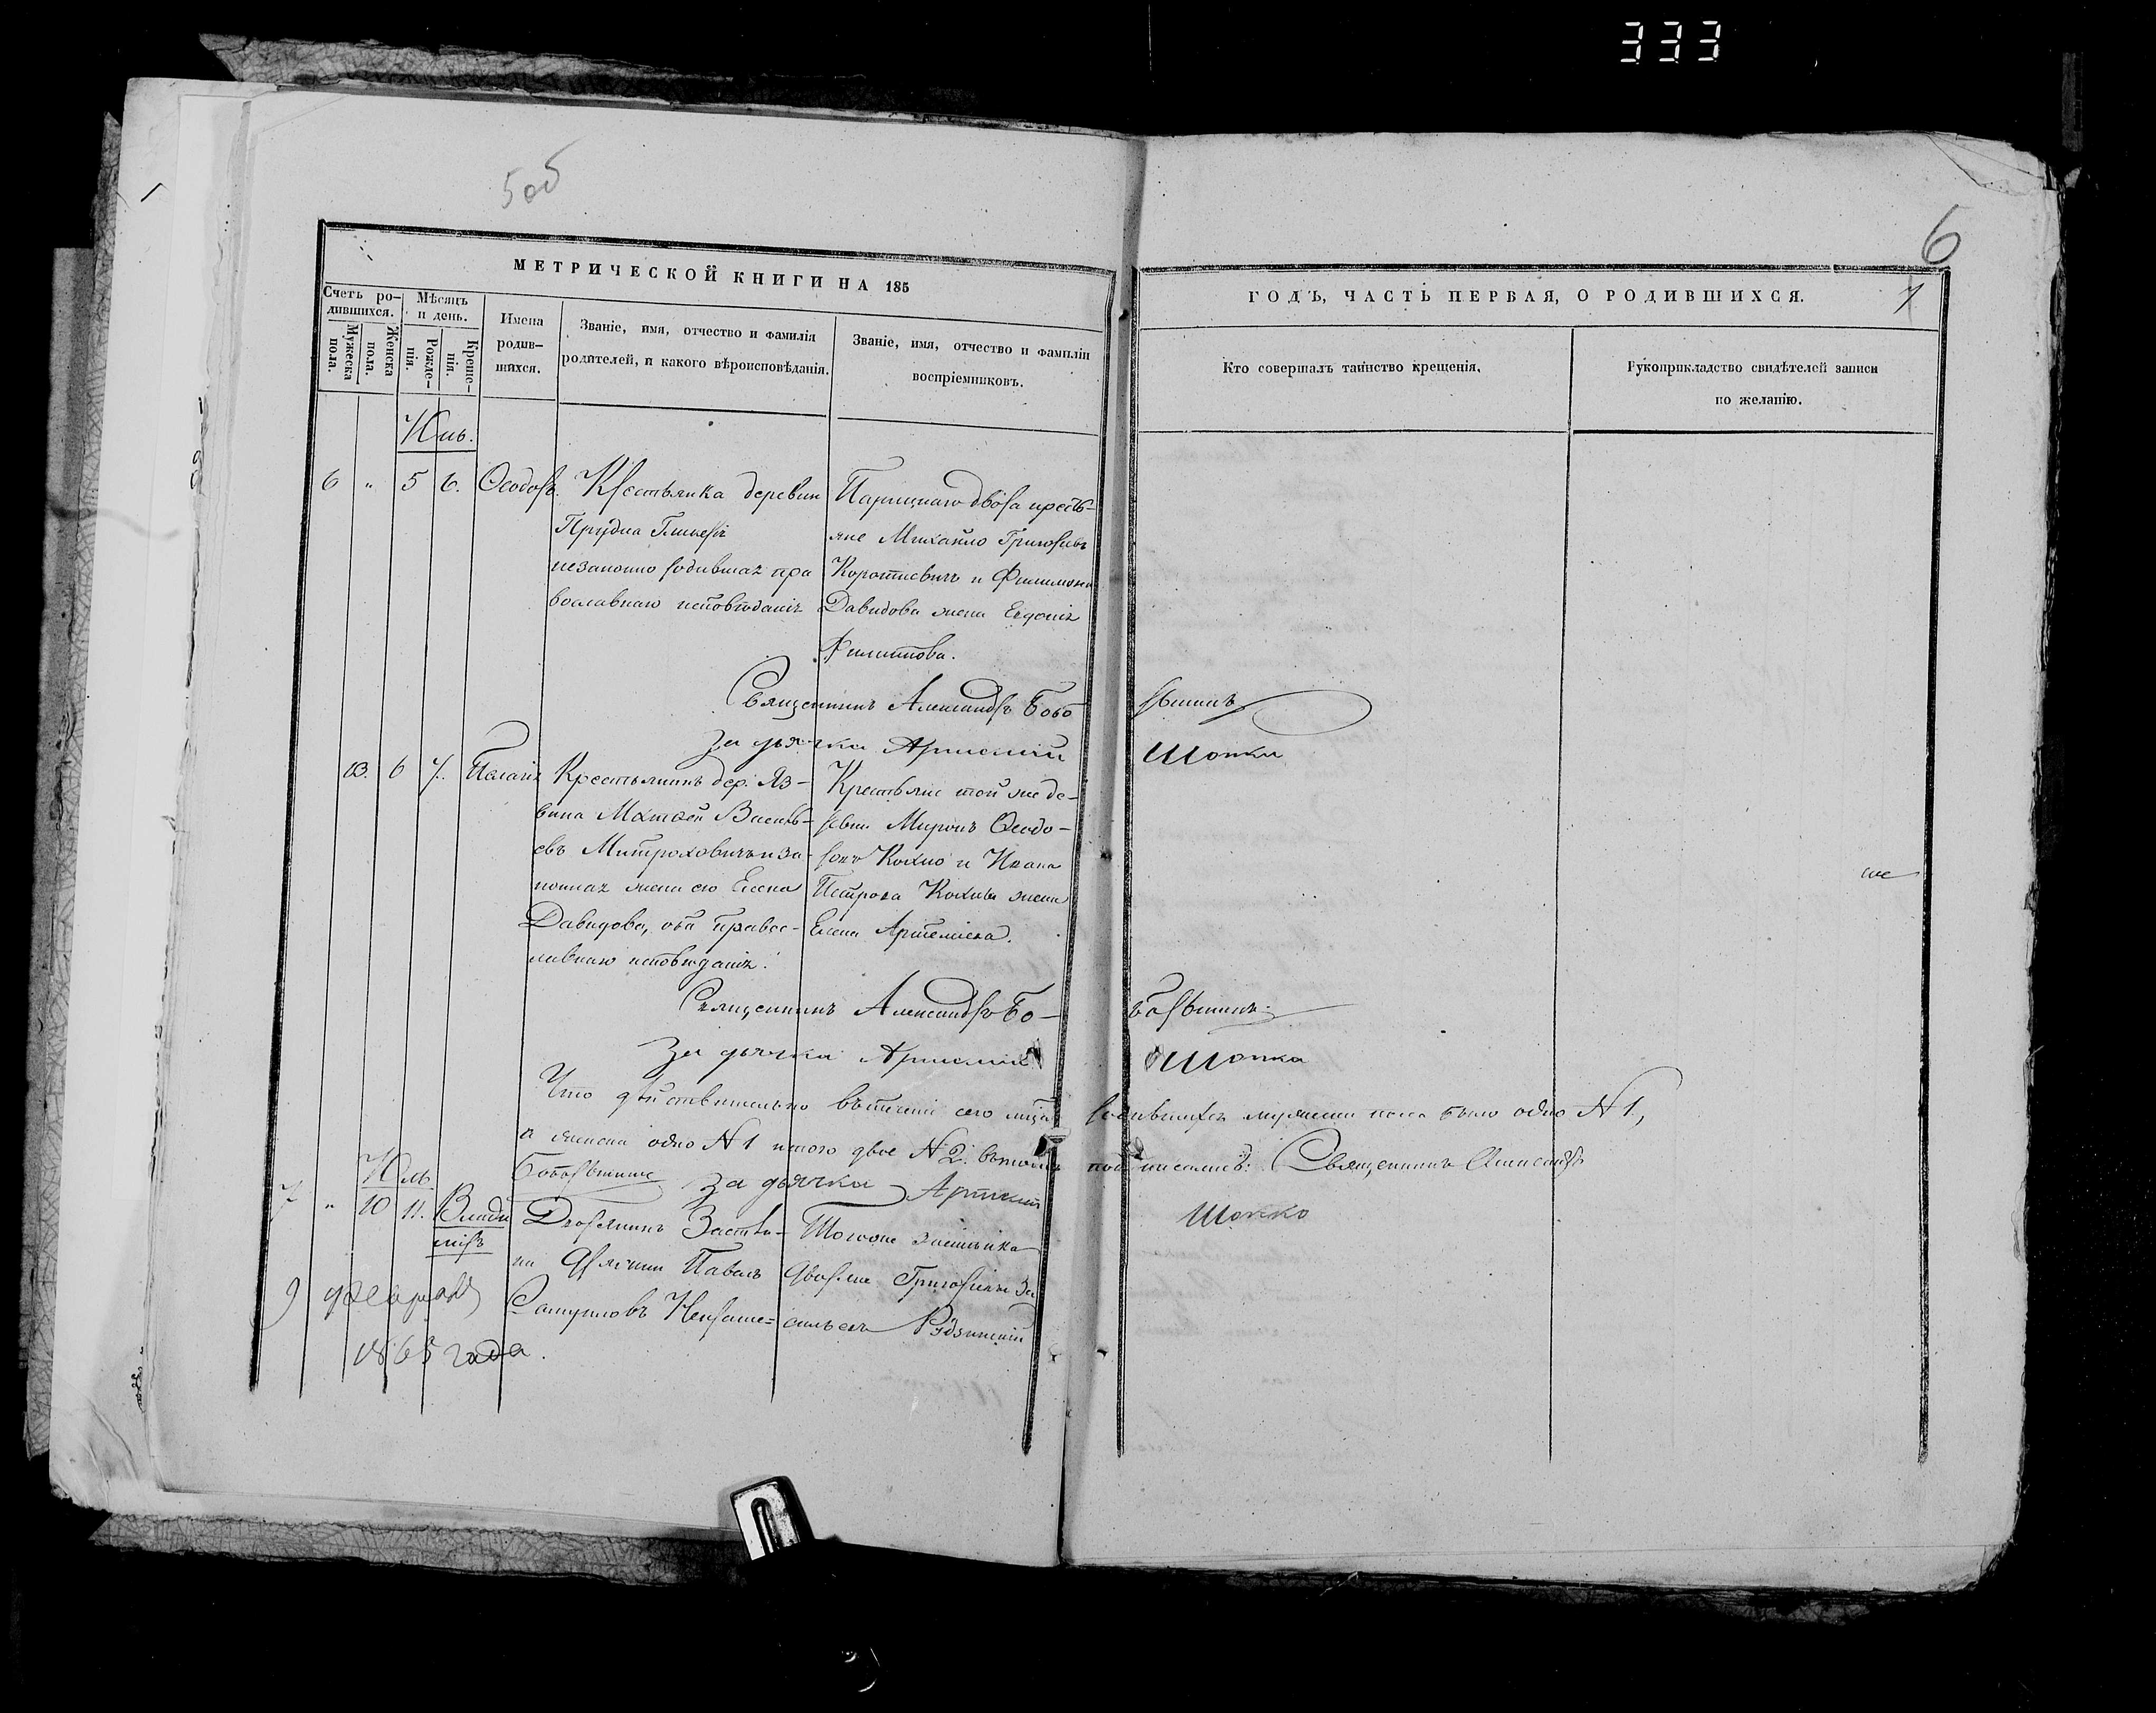 333
5 об
6
7
МЕТРИЧЕСКОЙ КНИГИ НА 185
ГОДЪ, ЧАСТЬ ПЕРВАЯ, О РОДИВШИХСЯ.
Счетъ ро-
дившихся.
Мужеска
пола.
Женска
пола.
Мѣсяцъ
и день.
Рожде-
нія.
Креще-
нія.
Имена
родив-
шихся.
Званіе, имя, отчество и фамилія
родителей, и какого вѣроисповѣданія.
Званіе, имя, отчество и фамиліи
воспріемниковъ.
Кто совершалъ таинство крещенія.
Рукоприкладство свидѣтелей записи
по желанію.
Юнь.
6 " 5 6. Ѳеодоръ.
Крестьянка деревни
Прудна Гликерія
незаконно родившая пра
вославнаго исповѣданія
двора кресть-
яне Михайло Григорьевъ
Короткевичъ и Филимона
Давидова жена Евдокія
Филипова.
Священникъ Александръ Бобо
рыкинъ
За дьячка Артемій
Шопка
13. 6 7. Пелагія
Крестьянинъ дер. Яз-
вина Матѳей Василь-
евъ Митроховичъ и за-
конная жена его Елена
Давидова, оба правос-
лавнаго исповѣданія.
Крестьяне той же де-
ревни Миронъ Ѳеодо-
ровъ Кохно и Ивана
Петрова Кохны жена
Елена Артемьева.
Священникъ Александръ Бо-
борыкинъ
За дьячка Артемій
Шопка
Что дѣйствительно въ теченіи сего мѣсяца родившихся мужеска пола было одно N 1,
а женска одно N 1 итого двое N 2. въ томъ подписались: Священникъ Александръ
Боборыкинъ За дьячка Артемій
Шопка
Юль
7 " 10 11. Влади
міръ
Дворянинъ Застѣн-
ка Павелъ
Сатурновъ
Тогоже застѣнка
дворяне Григорій
Рудзинскій
9 февраля
1865 года.